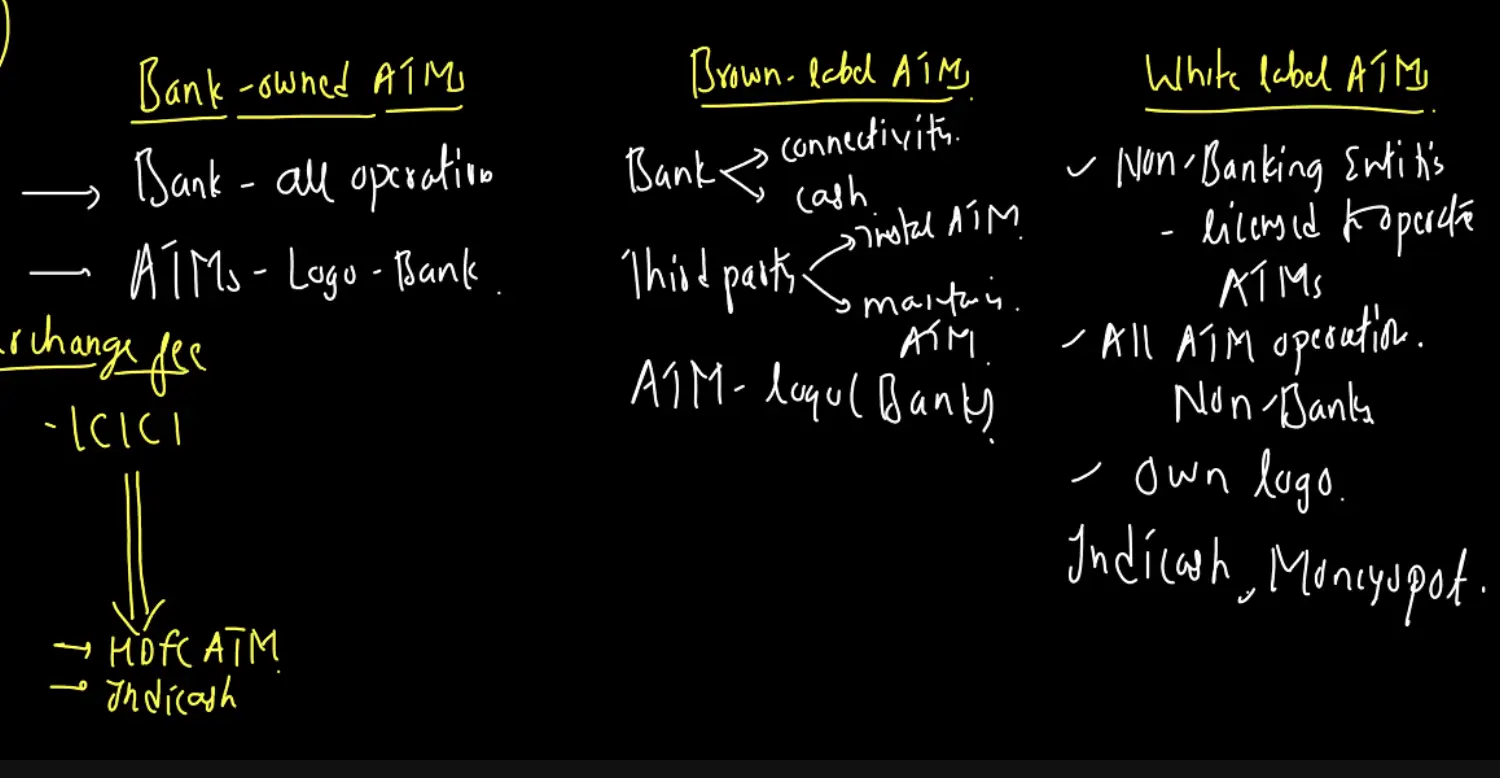 Bank-owned ATMs
→ Bank - all operation
→ ATMs - Logo - Bank.
fee
- ICICI
→ HDFC ATM.
→ Indicash
Brown-label ATMs.
Bank → connectivity.
→ cash
Third party → Instal ATM.
→ maintain.
ATM.
ATM - logo (Bank).
White label ATMs.
✓ Non-Banking Entitis
- licensed to operate
ATMs
✓ All ATM operation.
Non-Banks
✓ own logo.
Indicash, Moneyspot.